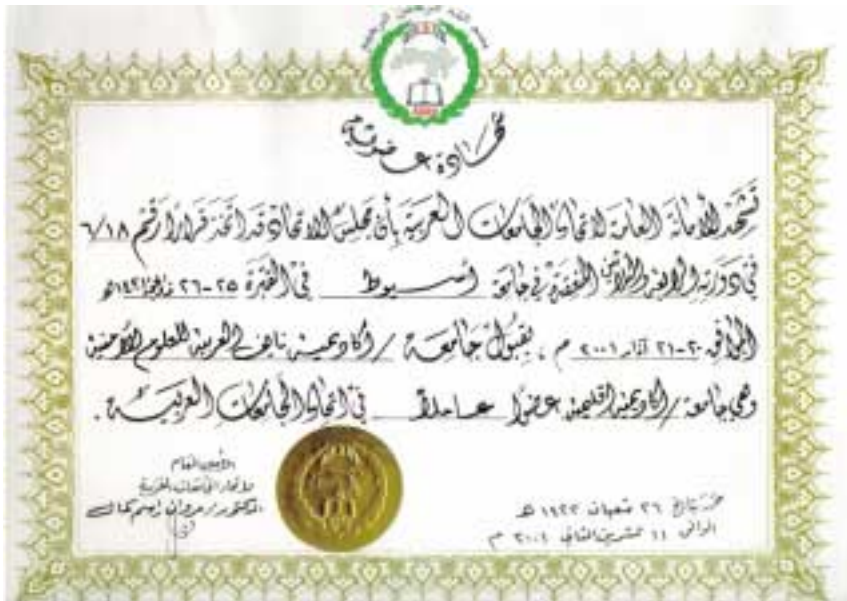 بسم الله الرحمن الرحيم
شهادة عضوية
تشهد الأمانة العامة لاتحاد الجامعات العربية بأن مجلس الاتحاد قد اتخذ قراراً رقم ٦/١٨
في دورته الرابعة والثلاثين المنعقدة في جامعة أسيوط في الفترة ٢٥-٢٦ ذي الحجة ١٤٢١هـ
الموافق ٢٠-٢١ آذار ٢٠٠١ م ، بقبول جامعة / أكاديمية نايف العربية للعلوم الأمنية
وهي جامعة / أكاديمية إقليمية عضواً عاملاً في اتحاد الجامعات العربية .
الأمين العام
لاتحاد الجامعات العربية
الدكتور مروان راسم كمال
حرر بتاريخ ٢٦ شعبان ١٤٢٢ هـ
الموافق ١١ تشرين الثاني ٢٠٠١ م